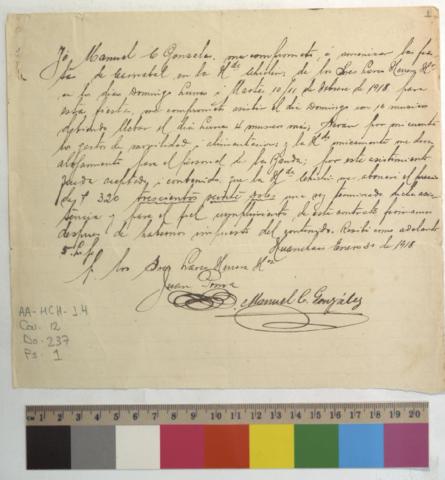 1
Yo, Manuel C Gonzales, me comprometo, á amenizar las fies
tas de Carnabal en la Hda Chiclin, de los Sres Larco Herrera Hos
en los dias Domingo Lunes i Martes, 10/11 de Febrero de 1918 para
esta fiesta, me comprometo asistir el dia Domingo con 10 musicos
debiendo llebar el dia Lunes 4 musicos mas; seran por mi cuenta
los gastos de mobilidad i alimentacion; y la Hda unicamente me dara
alojamiento para el personal de la Banda; por este asistimiento
queda aceptado i contenido, que la Hda Chiclin me abonará el precio
de, $ 320 trescientos veinte soles, una vez terminado dicha asis
tencia; y para el fiel cumplimiento de este contrato firmamos
despues de habernos impuesto del contenido. Recibi como adelanto
5.
Huanchaco Enero 30 de 1918
p. los Sres Larco Herrera Hos
Juan
Manuel C. González
AA-HCH-1.4
Caj. 12
Do. 237
Fs. 1
cm 1 2 3 4 5 6 7 8 9 10 11 12 13 14 15 16 17 18 19 20